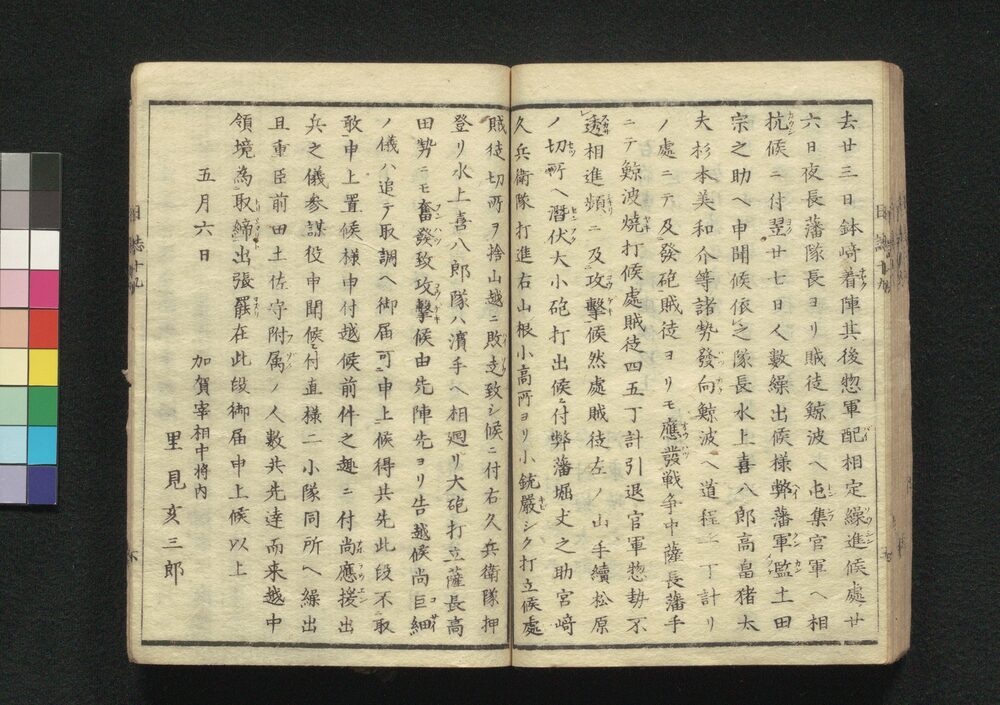 去廿三日鉢﨑着陣其後惣軍配相定繰進候處廿
六日夜長藩隊長ヨリ賊徒鯨波ヘ屯集官軍ヘ相
抗候ニ付翌廿七日人數繰出候様弊藩軍監土田
宗之助ヘ申聞候依之隊長水上喜八郎高畠猪太
夫杉本美和介等諸勢發向鯨波ヘ道程二丁計リ
ノ處ニテ及發砲賊徒ヨリモ應發戦争中薩長藩手
ニテ鯨波焼打候處賊徒四五丁計引退官軍惣勢不
透相進頻ニ及攻擊候然處賊徒左ノ山手續松原
ノ切所ヘ潜伏大小砲打出候付弊藩堀丈之助宮﨑
久兵衛隊打進右山根小高所ヨリ小銃嚴シク打立候處
賊徒切所ヲ捨山越ニ敗走致シ候ニ付右久兵衛隊押
登リ水上喜八郎隊ハ濱手ヘ相廻リ大砲打立薩長高
田勢ニモ奮發致攻擊候由先陣先ヨリ告越候尚巨細
ノ儀ハ追テ取調ヘ御届可申上候得共先此段不取
敢申上置候様申付越候前件之趣ニ付尚應援出
兵之儀参謀役申聞候付直様二小隊同所ヘ繰出
且重臣前田土佐守附属ノ人數共先達而来越中
領境為取締出張罷在此段御届申上候以上
五月六日
加賀宰相中将内
里見亥三郎
日誌十九